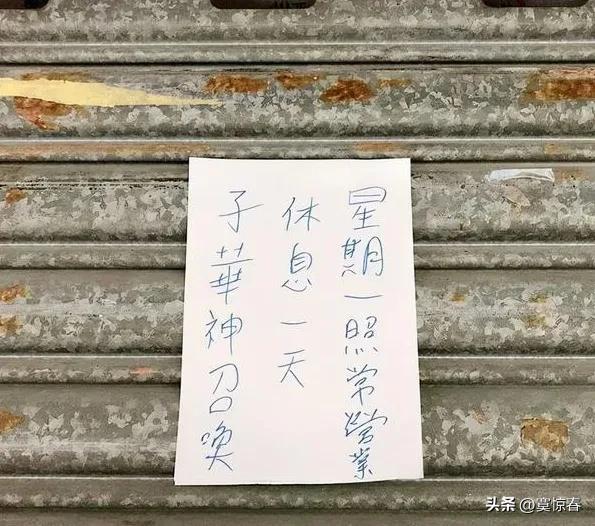 子華神召喚
休息一天
星期一照常營業
头条 @寞惊春